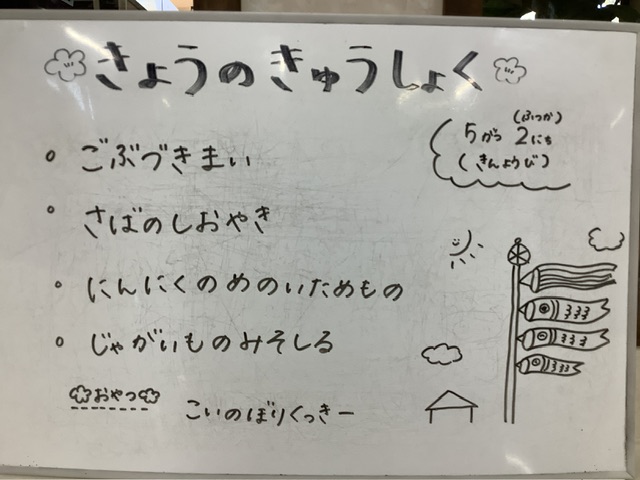 きょうのきゅうしょく
(ふつか)
5がつ 2にち
(きんようび)
。ごぶづきまい
。さばのしおやき
。にんにくのめのいためもの
。じゃがいものみそしる
おやつ こいのぼりくっきー